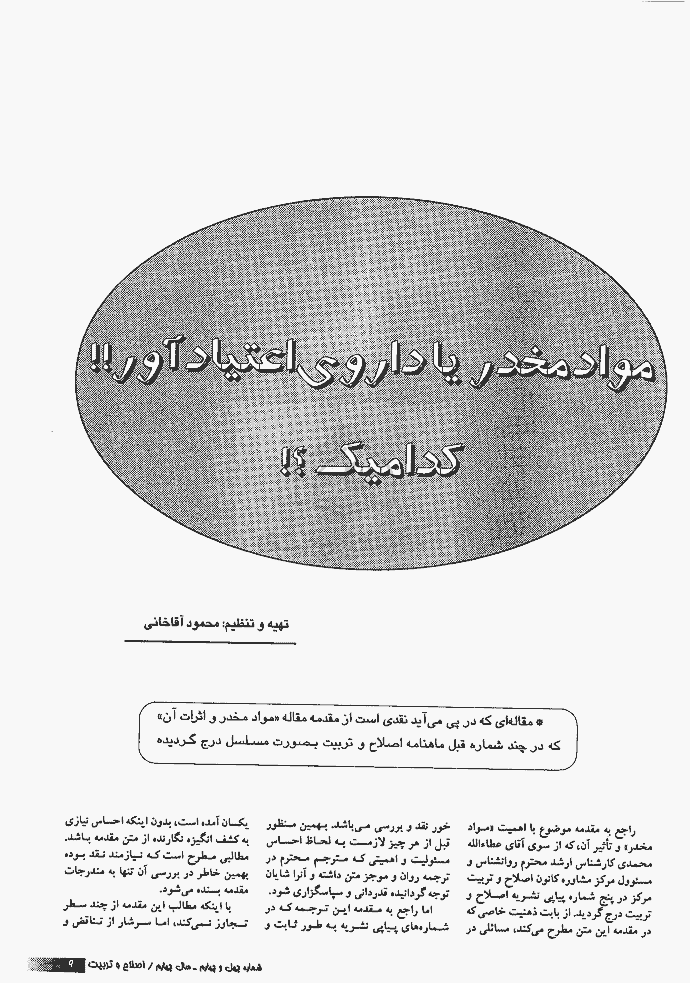 مواد مخدر یا داروی اعتیادآور!!
کدامیک ؟!
تهیه و تنظیم: محمود آقاخانی
* مقاله‌ای که در پی می‌آید نقدی است از مقدمه مقاله «مواد مخدر و اثرات آن»
که در چند شماره قبل ماهنامه اصلاح و تربیت بصورت مسلسل درج گردیده
راجع به مقدمه موضوع با اهمیت «مواد
مخدر» و تأثیر آن، که از سوی آقای عطاءالله
محمدی کارشناس ارشد محترم روانشناس و
مسئوول مرکز مشاوره کانون اصلاح و تربیت
مرکز در پنج شماره پیاپی نشریه اصلاح و
تربیت درج گردید. از بابت ذهنیت خاصی که
در مقدمه این متن مطرح می‌کند، مسائلی در
خور نقد و بررسی می‌باشد. بهمین منظور
قبل از هر چیز لازمست به لحاظ احساس
مسئولیت و اهمیتی که مترجم محترم در
ترجمه روان و موجز متن داشته و آنرا شایان
توجه گردانیده قدردانی و سپاسگزاری شود.
اما راجع به مقدمه این ترجمه که در
شماره‌های پیاپی نشریه به طور ثابت و
یکسان آمده است، بدون اینکه احساس نیازی
به کشف انگیزه نگارنده از متن مقدمه باشد.
مطالبی مطرح است که نیازمند نقد بوده
بهمین خاطر در بررسی آن تنها به مندرجات
مقدمه بسنده می‌شود.
با اینکه مطالب این مقدمه از چند سطر
تجاوز نمی‌کند، اما سرشار از تناقض و
شماره چهل و چهارم ـ سال چهارم / اصلاح و تربیت ۹